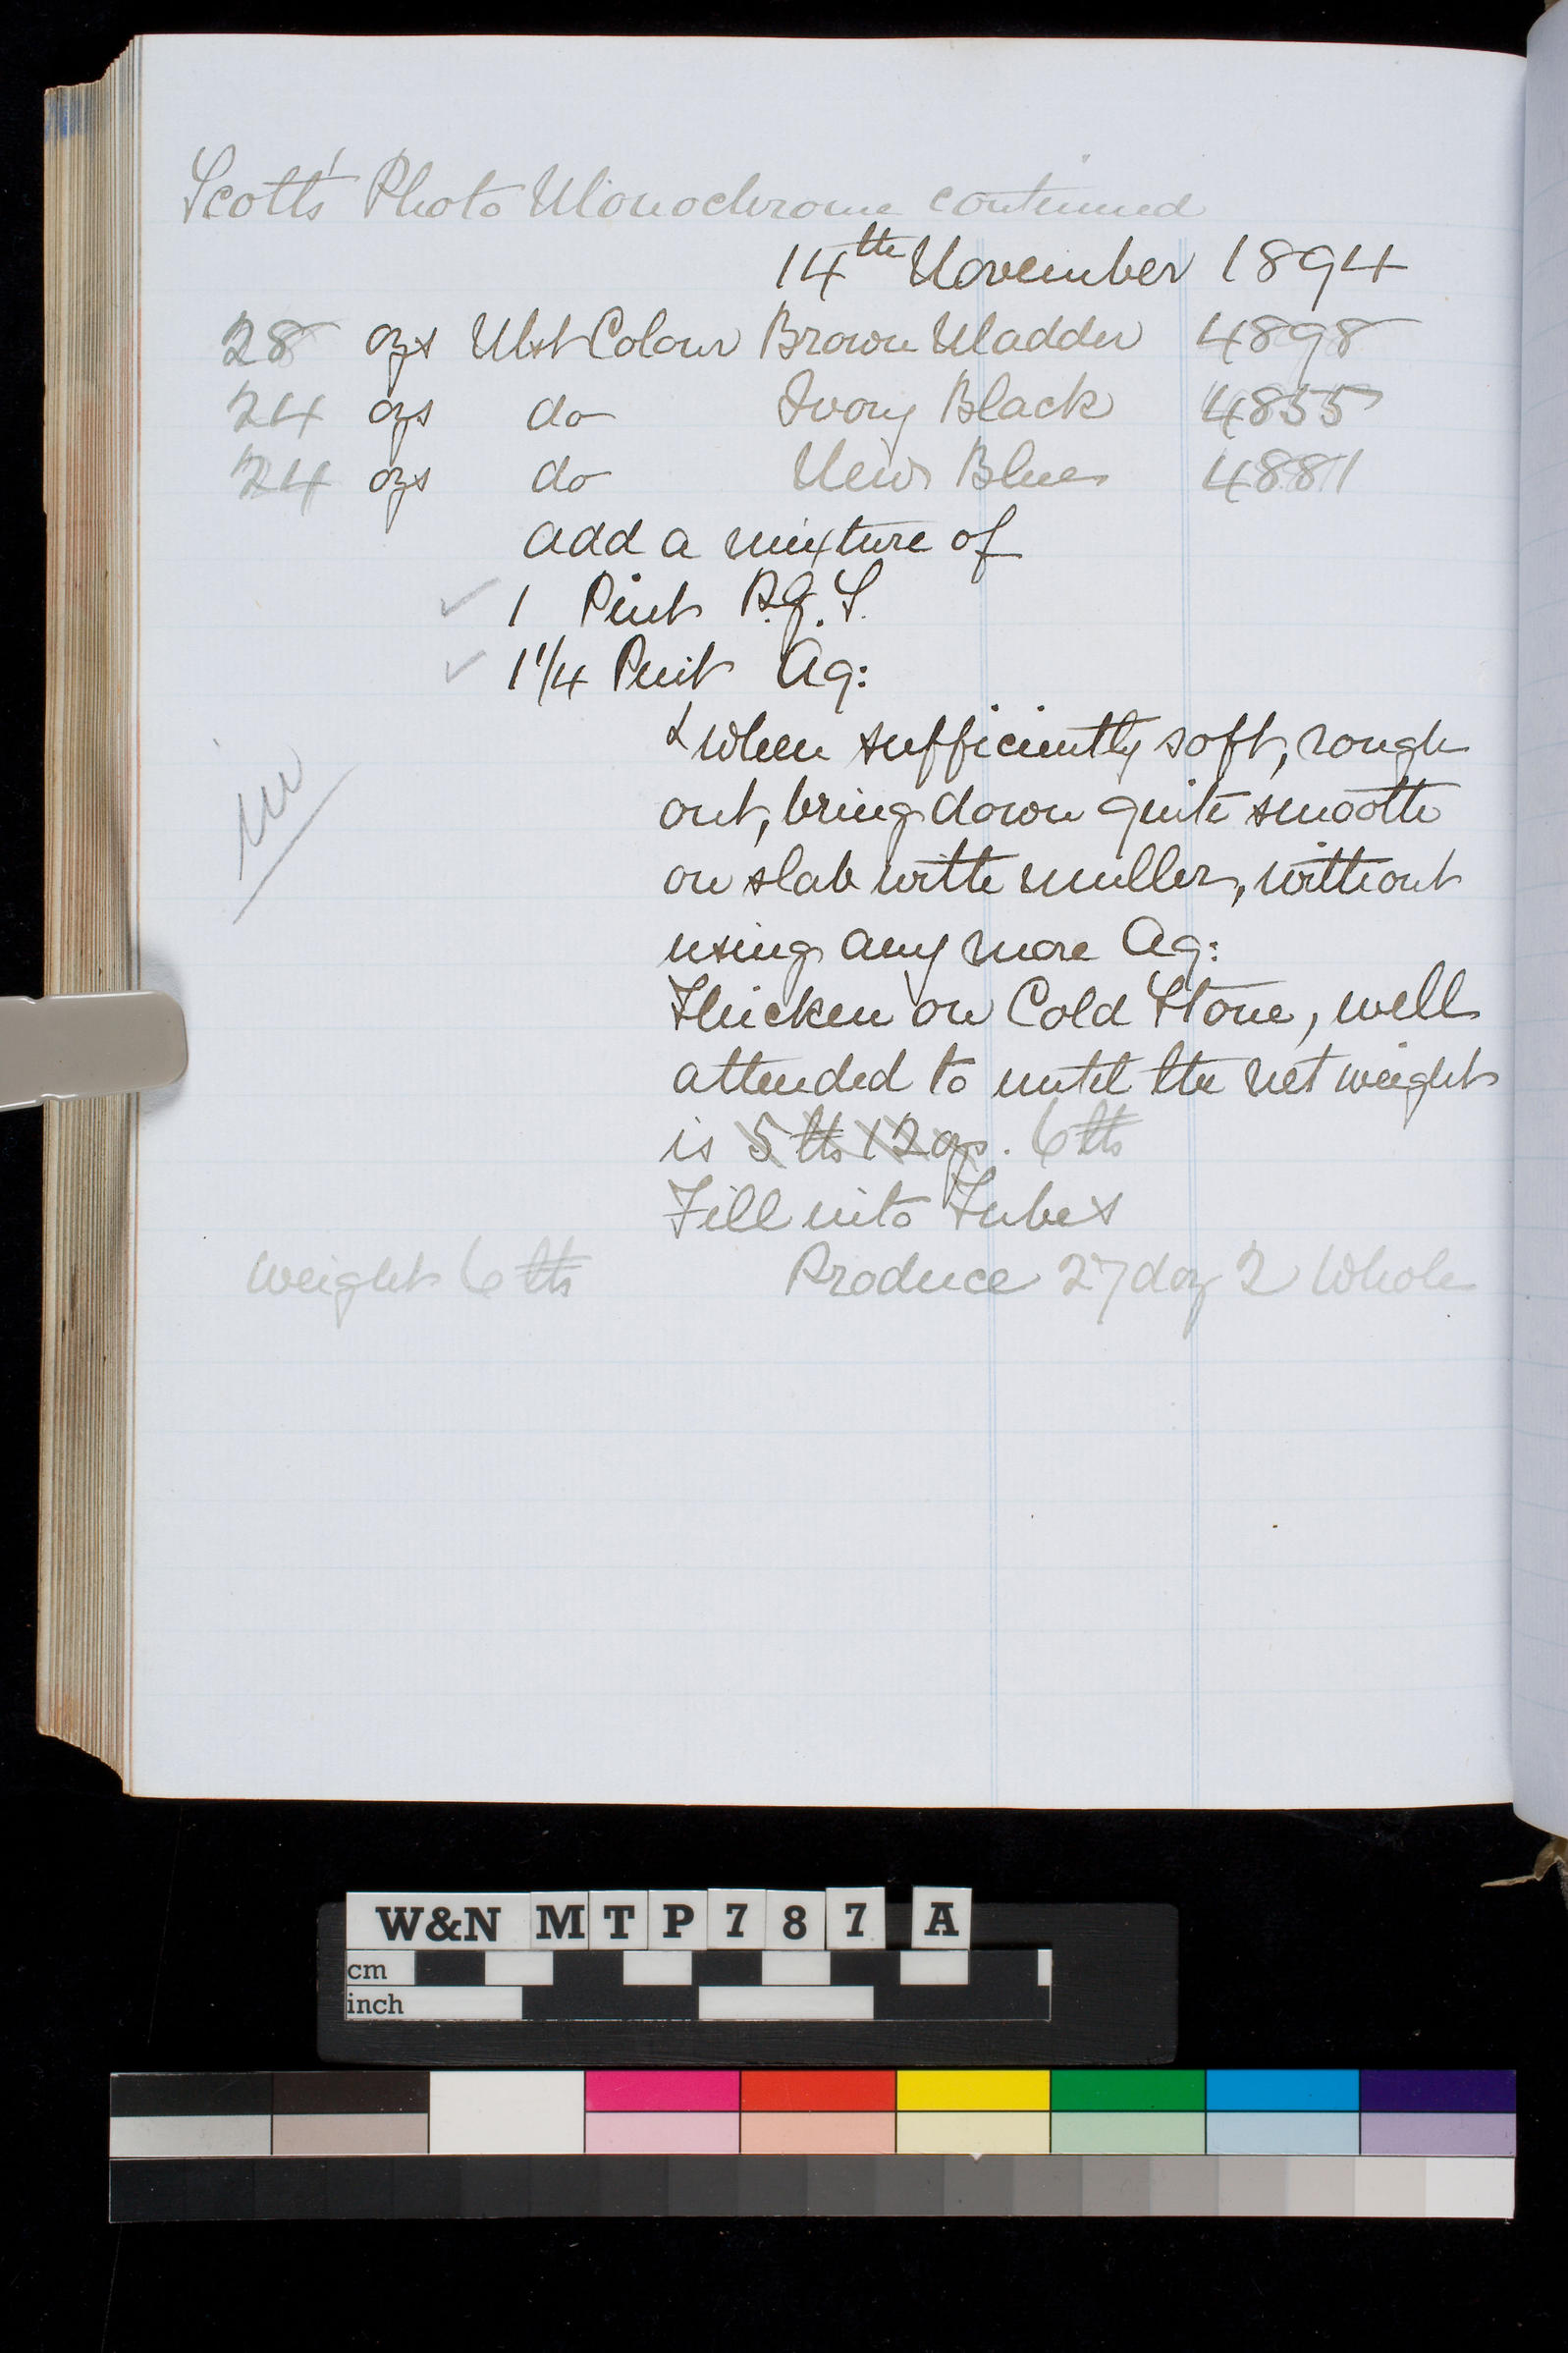 Scott's Photo Monochrome continued
14th November 1894
28 ozs Mst Colour Brown Madder 4898
24 ozs do Ivory Black 4855
24 ozs do New Blue 4881
add a mixture of
✓ 1 Pint P.G.S.
✓ 1 1/4 Pint Aq:
& when sufficiently soft, rough
out, bring down quite smooth
on slab with muller, without
using any more Aq:
Thicken on Cold Stone, well
attended to until the net weight
is 5 lbs 12 ozs. 6 lbs
Fill into Tubes
Weight 6 lbs Produce 27 doz 2 Whole
W&N MTP787 A
cm
inch